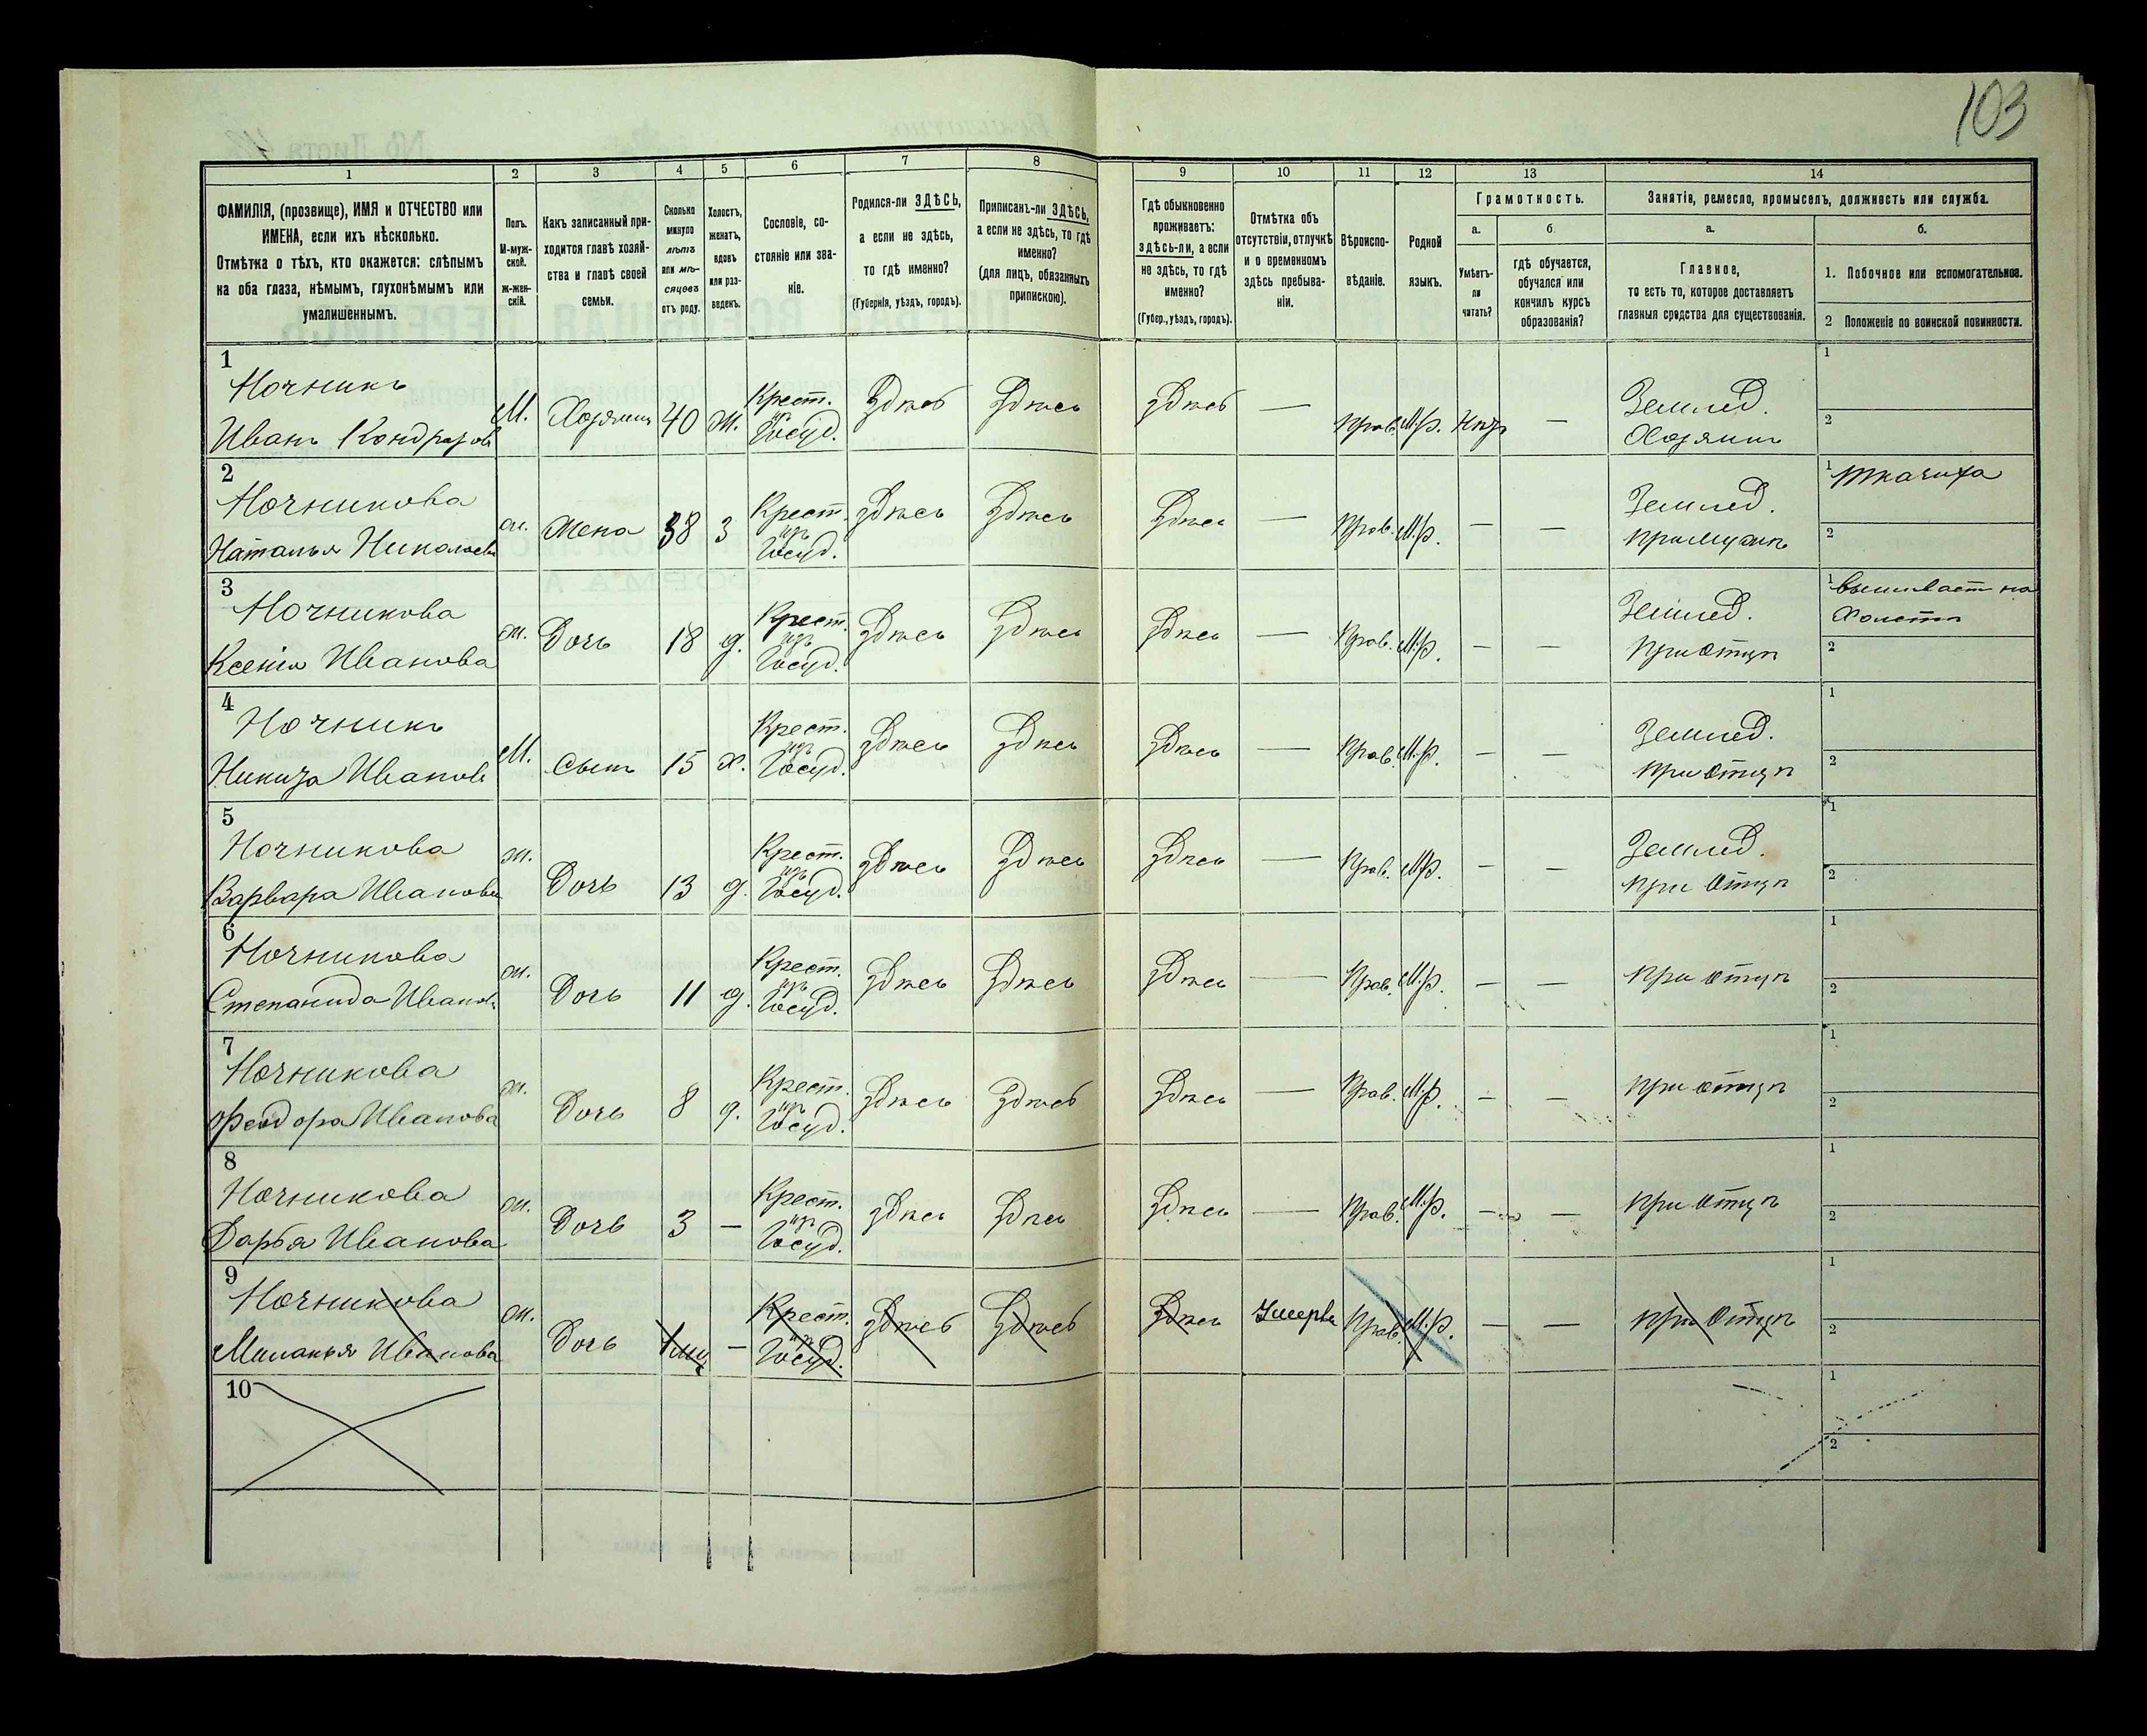 103
1 2 3 4 5 6 7 8 9 10 11 12 13 14
ФАМИЛІЯ, (прозвище), ИМЯ и ОТЧЕСТВО или
ИМЕНА, если ихъ нѣсколько.
Отмѣтка о тѣхъ, кто окажется: слѣпымъ
на оба глаза, нѣмымъ, глухонѣмымъ или
умалишеннымъ.
Полъ.
М-муж-
ской.
ж-жен-
скій.
Какъ записанный при-
ходится главѣ хозяй-
ства и главѣ своей
семьи.
Сколько
минуло
лѣтъ
или мѣ-
сяцевъ
отъ роду.
Холостъ,
женатъ,
вдовъ
или раз-
веденъ.
Сословіе, со-
стояніе или зва-
ніе.
Родился-ли ЗДѢСЬ,
а если не здѣсь,
то гдѣ именно?
(Губернія, уѣздъ, городъ).
Приписанъ-ли ЗДѢСЬ,
а если не здѣсь, то гдѣ
именно?
(для лицъ, обязанныхъ
припискою).
Гдѣ обыкновенно
проживаетъ:
здѣсь-ли, а если
не здѣсь, то гдѣ
именно?
(Губер., уѣздъ, городъ).
Отмѣтка объ
отсутствіи, отлучкѣ
и о временномъ
здѣсь пребыва-
ніи.
Вѣроиспо-
вѣданіе.
Родной
языкъ.
Грамотность.
а.
Умѣетъ-
ли
читать?
б
гдѣ обучается,
обучался или
кончилъ курсъ
образованія?
Занятіе, ремесло, промыселъ, должность или служба.
а.
Главное,
то есть то, которое доставляетъ
главныя средства для существованія.
б.
1. Побочное или вспомогательное.
2 Положеніе по воинской повинности.
1
Ночникъ
Иванъ Кондратовъ
М. Хозяинъ 40 Ж. Крест.
изъ
Госуд.
Здѣсь Здѣсь Здѣсь — Прав. М.р. Нѣтъ —
Землед.
Хозяинъ
1
2
2
Ночникова
Наталья Николаева
ж. Жена 38 З Крест.
изъ
Госуд.
Здѣсь Здѣсь Здѣсь — Прав. М.р. — —
Землед.
при мужѣ
1 Ткачиха
2
3
Ночникова
Ксенія Иванова
ж. Дочь 18 д. Крест.
изъ
Госуд.
Здѣсь Здѣсь Здѣсь — Прав. М.р. — —
Землед.
при отцѣ
1 вышивает на
холстѣ
2
4
Ночникъ
Никита Ивановъ
М. Сынъ 15 х. Крест.
изъ
Госуд.
Здѣсь Здѣсь Здѣсь — Прав. М.р. — —
Землед.
при отцѣ
1
2
5
Ночникова
Варвара Иванова
ж. Дочь 13 д. Крест.
изъ
Госуд.
Здѣсь Здѣсь Здѣсь — Прав. М.р. — —
Землед.
при отцѣ
1
2
6
Ночникова
Степанида Иванов
ж. Дочь 11 д. Крест.
изъ
Госуд.
Здѣсь Здѣсь Здѣсь — Прав. М.р. — —
при отцѣ
1
2
7
Ночникова
Феодора Иванова
ж. Дочь 8 д. Крест.
изъ
Госуд.
Здѣсь Здѣсь Здѣсь — Прав. М.р. — —
при отцѣ
1
2
8
Ночникова
Дарья Иванова
ж. Дочь 3 — Крест.
изъ
Госуд.
Здѣсь Здѣсь Здѣсь — Прав. М.р. — —
при отцѣ
1
2
9
Ночникова
Миланья Иванова
ж. Дочь 1 мц — Крест.
изъ
Госуд.
Здѣсь Здѣсь Здѣсь Умерла Прав. М.р. — —
при отцѣ
1
2
10
1
2